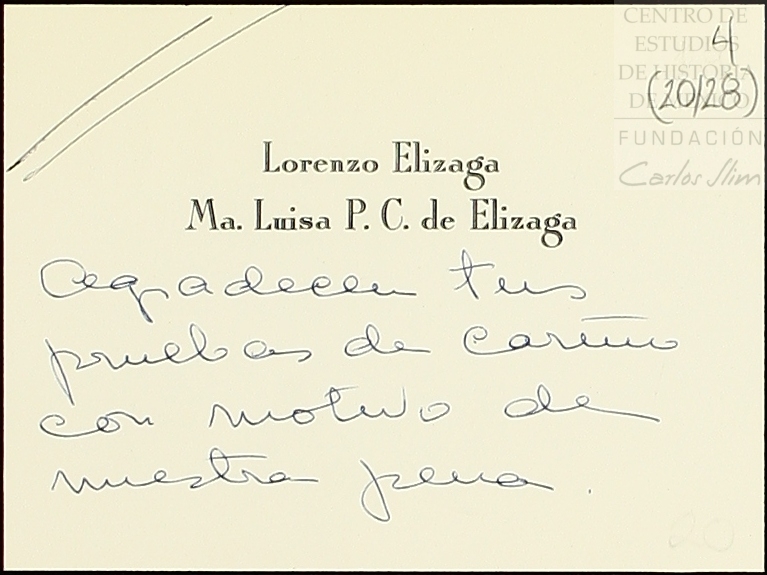 CENTRO DE
ESTUDIOS
DE HISTORIA
DE MÉXICO
FUNDACIÓN
Carlos Slim
4
(20/28)
Lorenzo Elizaga
Ma. Luisa P. C. de Elizaga
Agradecen tus
pruebas de cariño
con motivo de
nuestra pena.
20